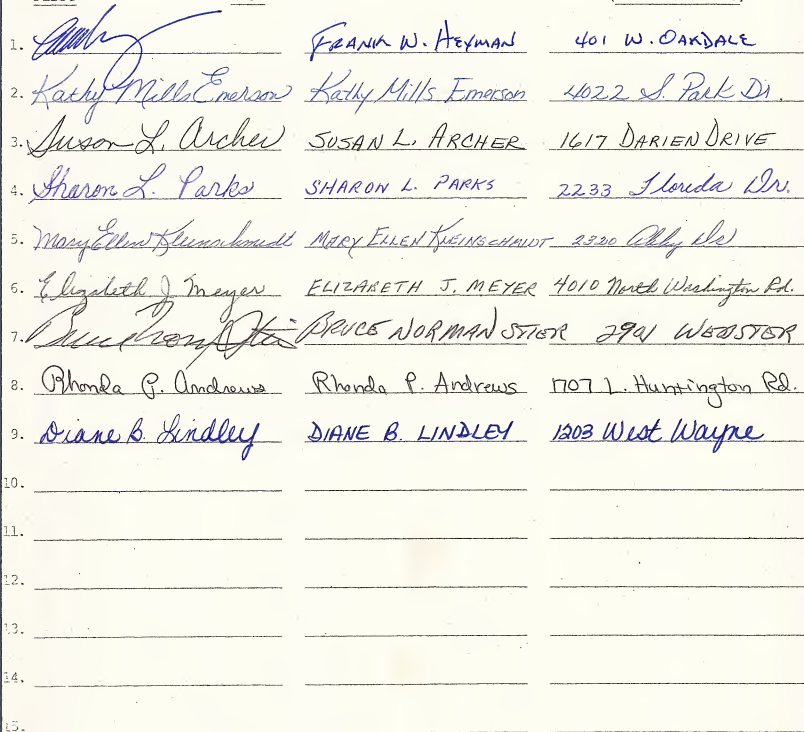 1. FRANK W. HEYMAN 401 W. OAKDALE
2. Kathy Mills Emerson Kathy Mills Emerson 4022 S. Park Dr.
3. Susan L. Archer SUSAN L. ARCHER 1617 DARIEN DRIVE
4. Sharon L. Parks SHARON L. PARKS 2233 Florida Dr.
5. Mary Ellen Kleinschmidt MARY ELLEN KLEINSCHMIDT 2320 Abbey Dr
6. Elizabeth J Meyer ELIZABETH J. MEYER 4010 North Washington Rd.
7. BRUCE NORMAN STIER 2901 WEBSTER
8. Rhonda P. Andrews Rhonda P. Andrews 1707 L. Huntington Rd.
9. Diane B. Lindley DIANE B. LINDLEY 1203 West Wayne
10.
11.
12.
13.
14.
15.